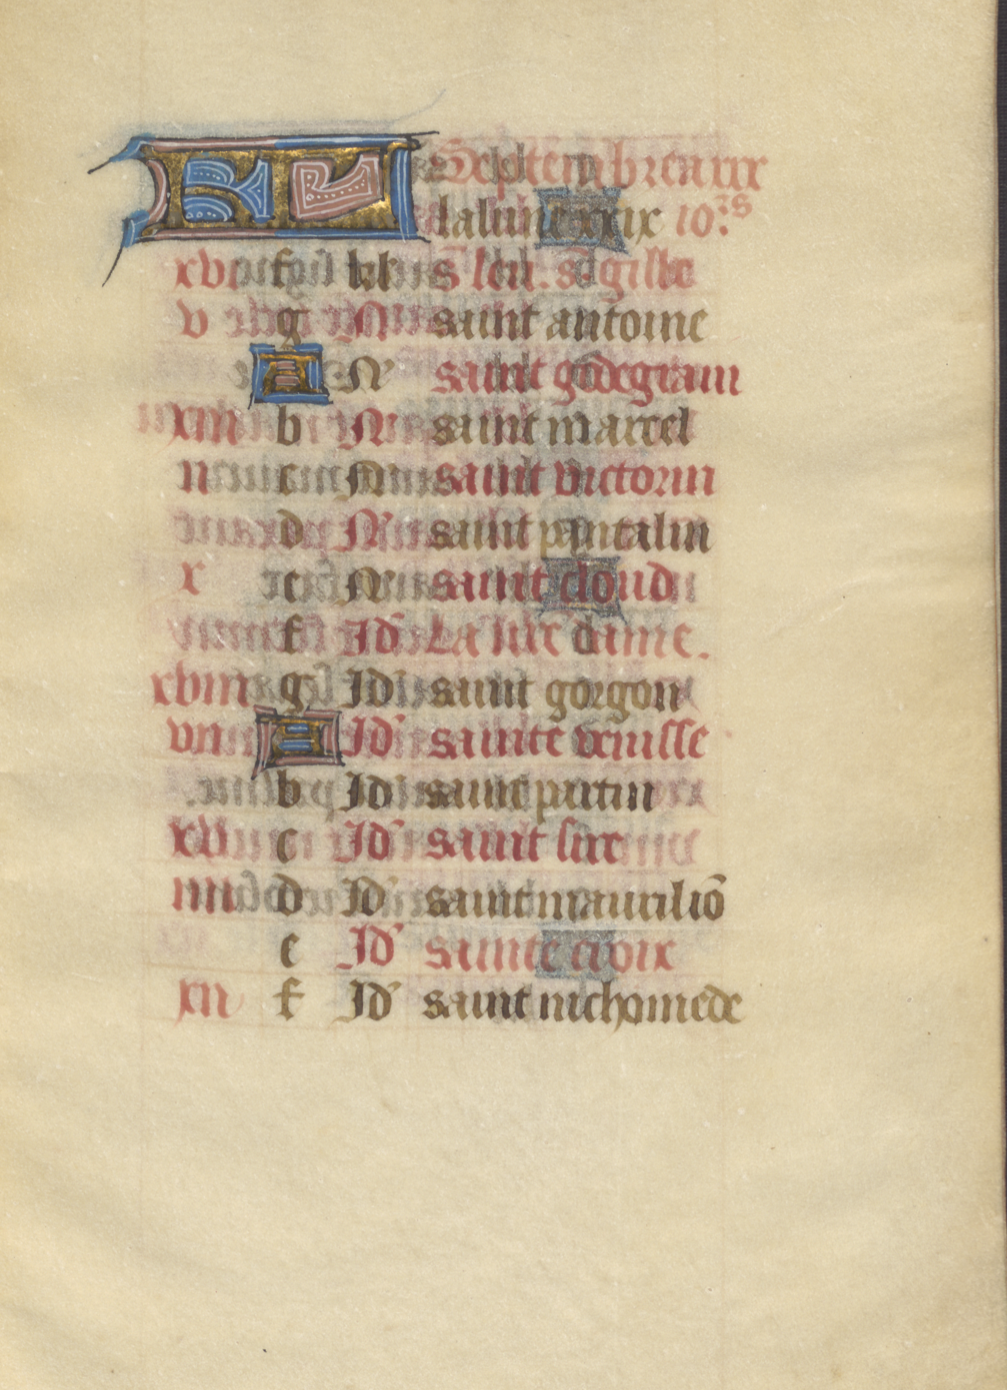 KL Septembre a xxx
la lune xxix iors
xvi f kl s leu. s. gille
v g N saint antoine
A N saint godegran
xiii b N saint marcel
ii c N saint victorin
d N saint pantalin
x e N saint cloud
f Id La nre dame.
xviii g Id saint gorgon
vii A Id sainte venisse
b Id saint
c Id saint
iiii d Id saint maurilio
e Id sainte croix
xii f Id saint nichomede